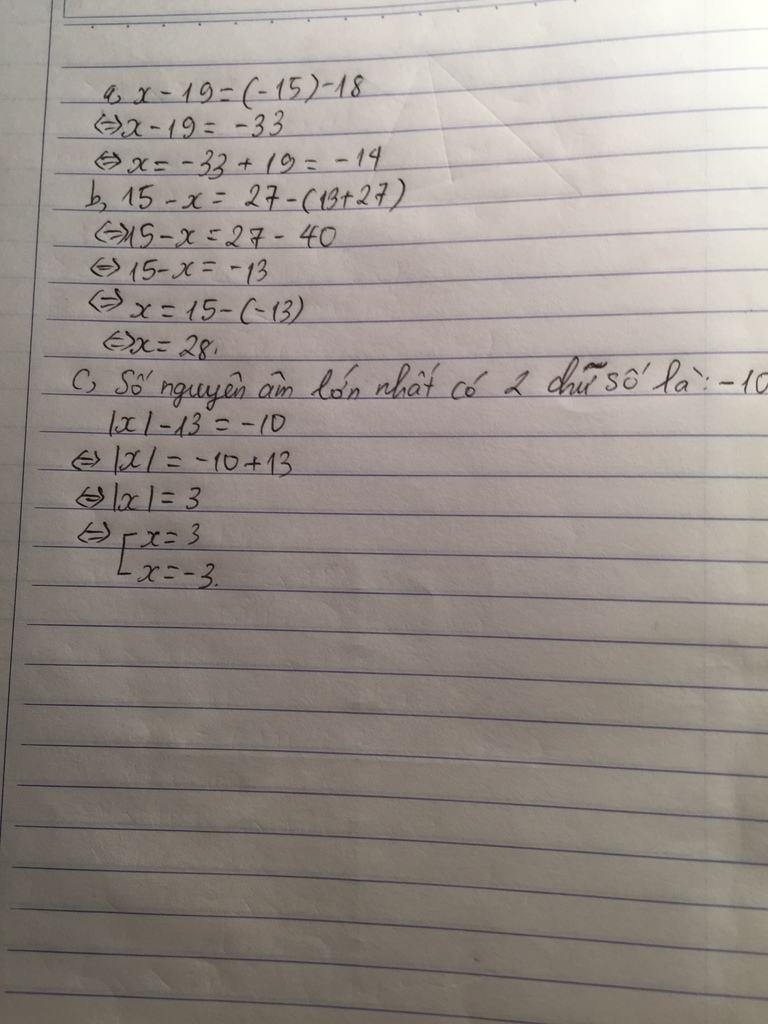 a, x - 19 = (-15) - 18
⇔ x - 19 = -33
⇔ x = -33 + 19 = -14
b, 15 - x = 27 - (13+27)
⇔ 15 - x = 27 - 40
⇔ 15 - x = -13
⇔ x = 15 - (-13)
⇔ x = 28.
C, Số nguyên âm lớn nhất có 2 chữ số là: -10
|x| - 13 = -10
⇔ |x| = -10 + 13
⇔ |x| = 3
⇔ [ x = 3
x = -3.